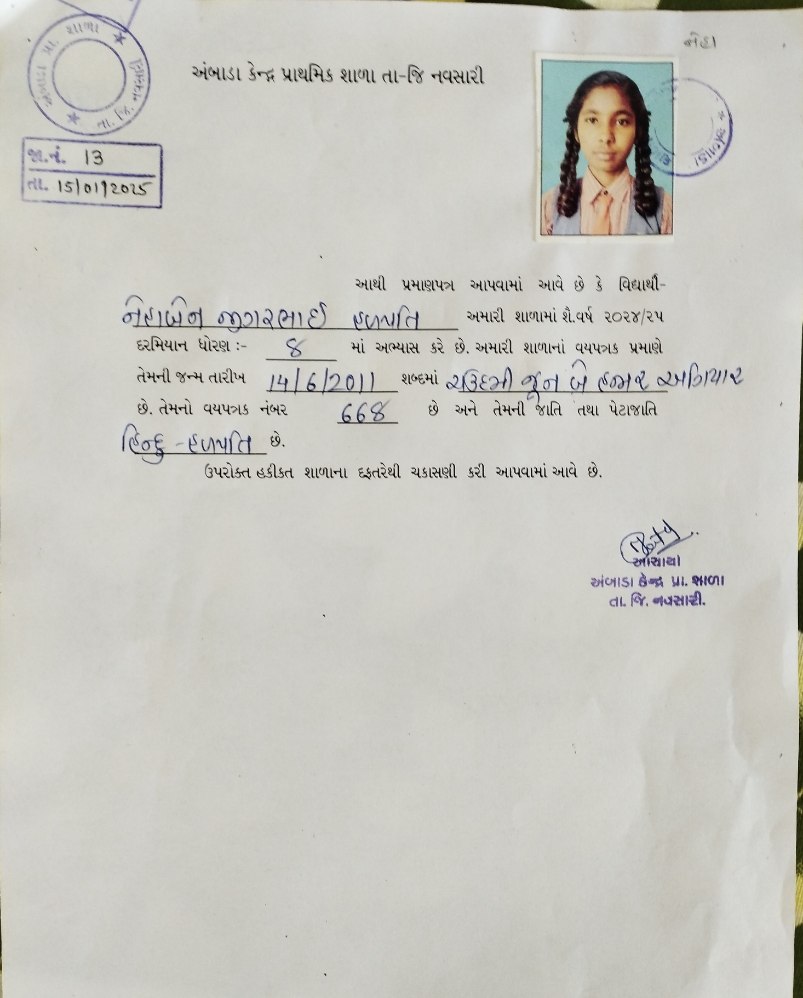 નેહા
અંબાડા કેન્દ્ર પ્રાથમિક શાળા તા-જિ નવસારી
પ્રા. શાળા
તા. જિ. નવસારી
જા.નં. 13
તા. 15/01/2025
આથી પ્રમાણપત્ર આપવામાં આવે છે કે વિદ્યાર્થી-
નેહાબેન જીગરભાઈ હળપતિ અમારી શાળામાં શૈ.વર્ષ ૨૦૨૪/૨૫
દરમિયાન ધોરણ :- 8 માં અભ્યાસ કરે છે. અમારી શાળાનાં વયપત્રક પ્રમાણે
તેમની જન્મ તારીખ 14/6/2011 શબ્દમાં ચઉદમી જૂન બે હજાર અગિયાર
છે. તેમનો વયપત્રક નંબર 668 છે અને તેમની જાતિ તથા પેટાજાતિ
હિન્દુ - હળપતિ છે.
ઉપરોક્ત હકીકત શાળાના દફતરેથી ચકાસણી કરી આપવામાં આવે છે.
આચાર્ય
અંબાડા કેન્દ્ર પ્રા. શાળા
તા. જિ. નવસારી.